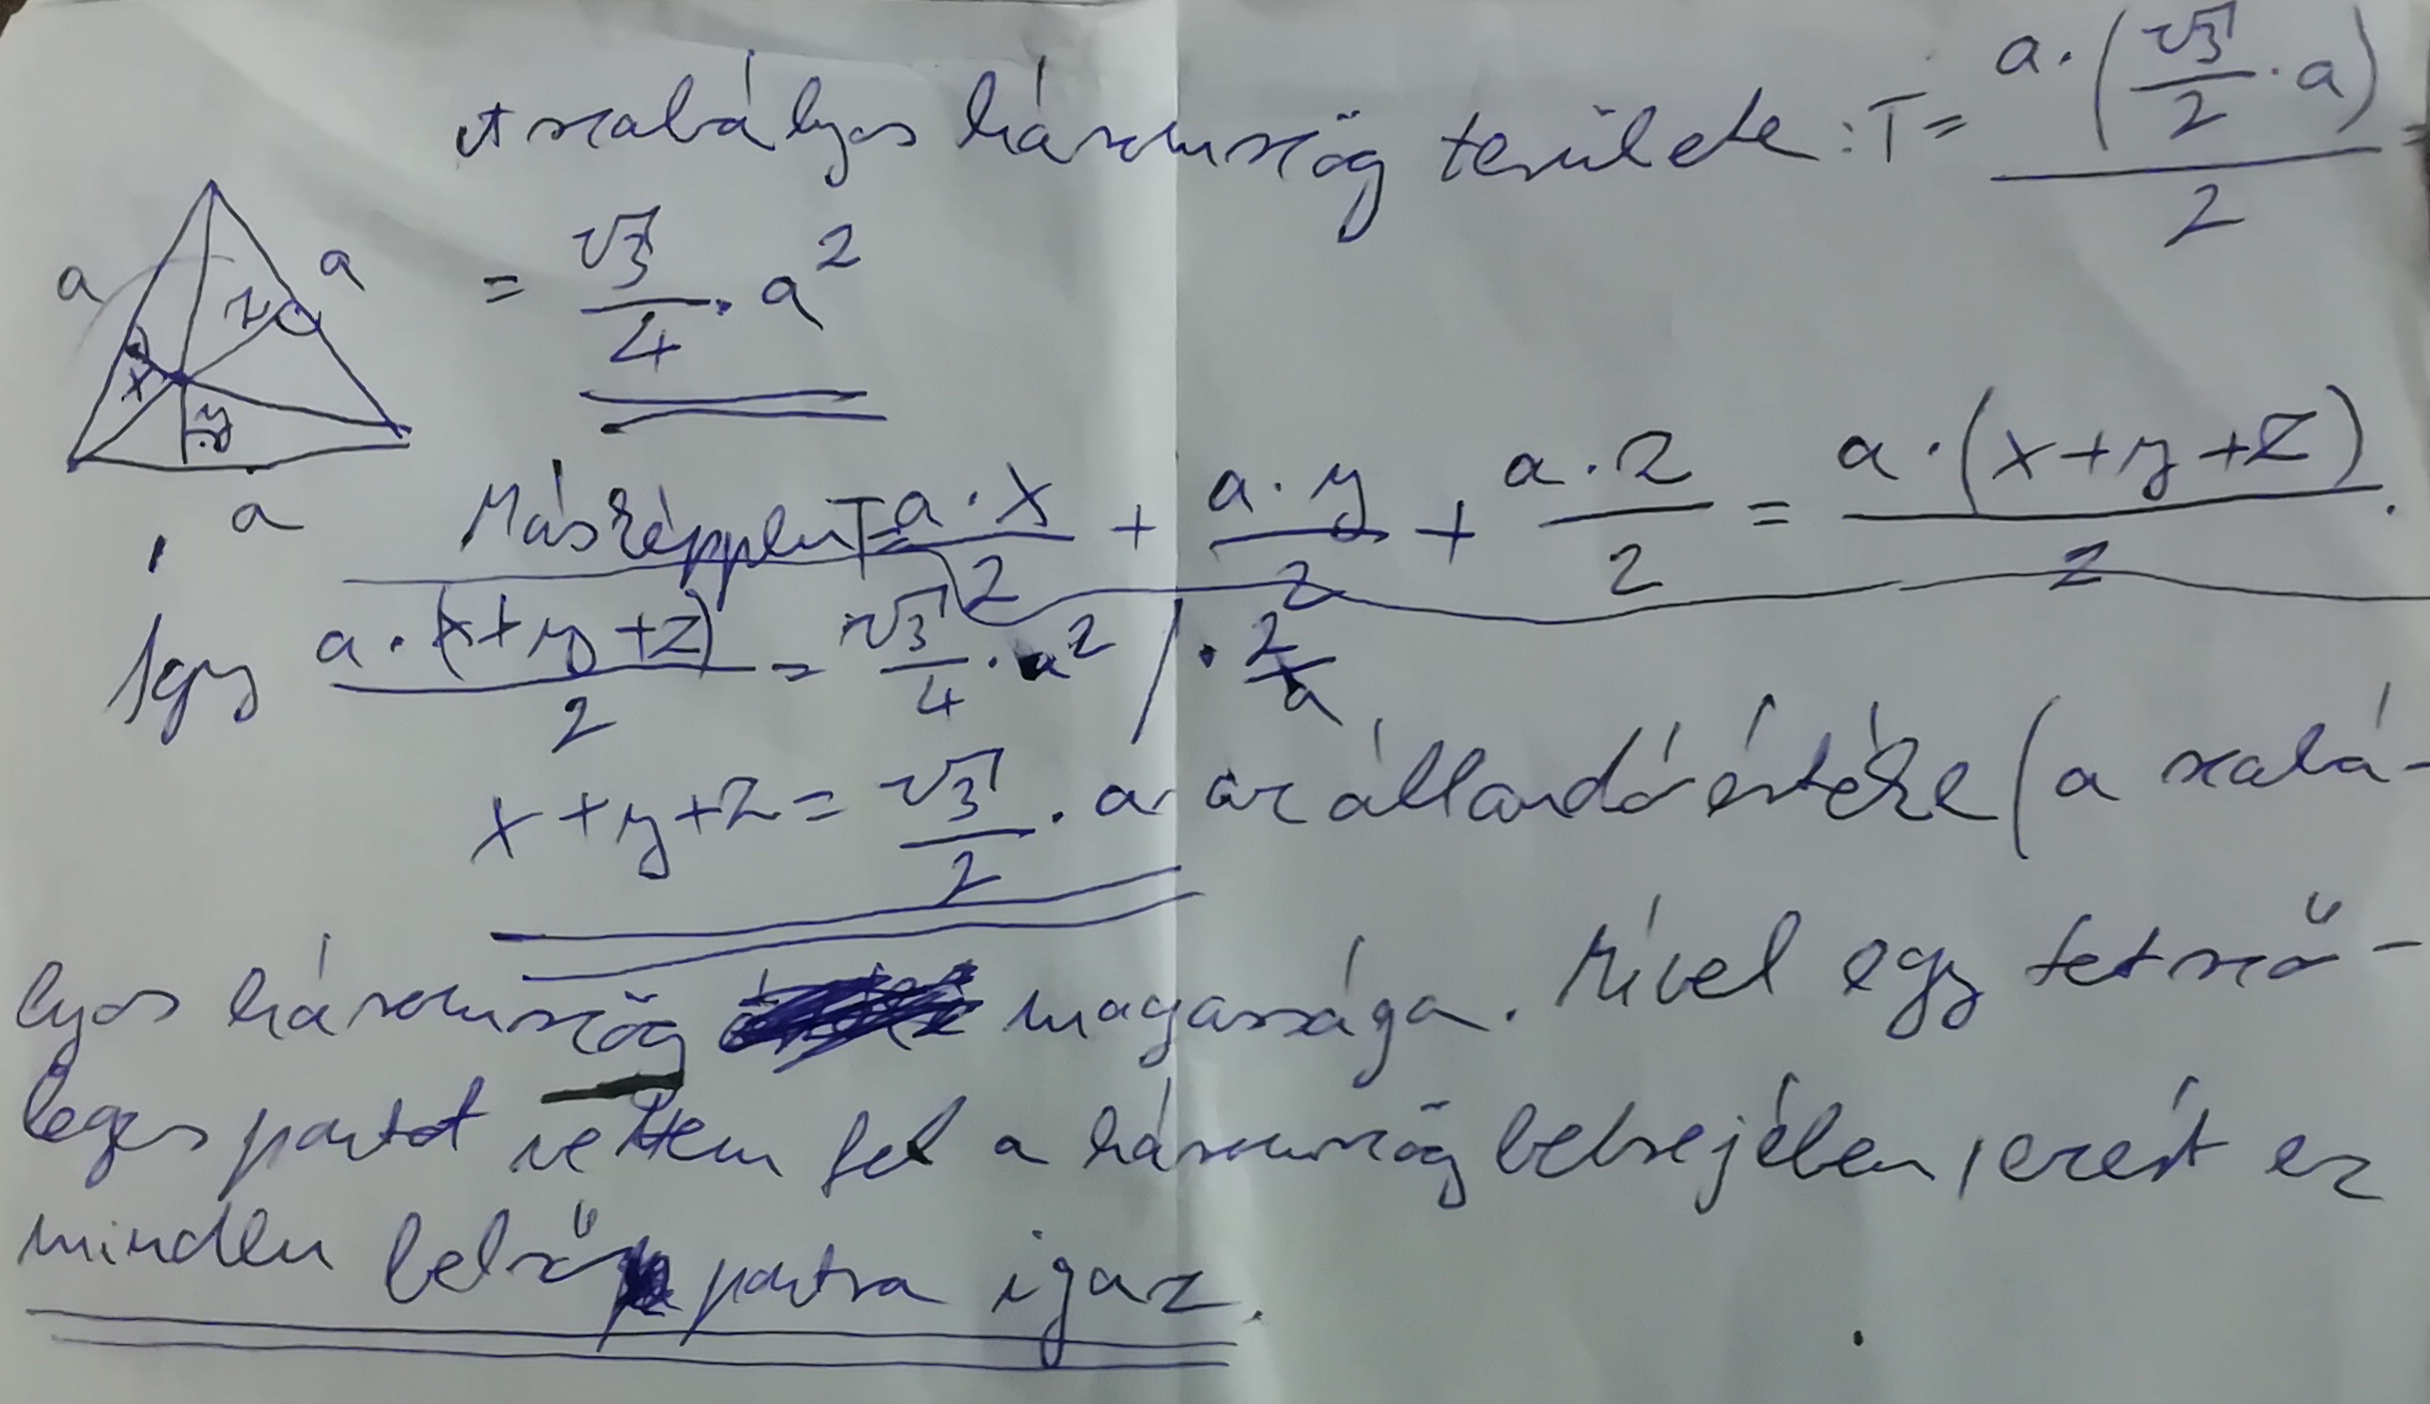 A szabályos háromszög területe: T = (a·(√3/2 · a))/2 =
= √3/4 · a²
a
a
z
x
y
a
Másképpen T = a·x/2 + a·y/2 + a·z/2 = a·(x+y+z)/2.
Így a·(x+y+z)/2 = √3/4 · a² / · 2/a
x+y+z = √3/2 · a az állandó értéke (a szabá-
lyos háromszög magassága. Mivel egy tetsző-
leges pontot vettem fel a háromszög belsejében, ezért ez
minden belső pontra igaz.